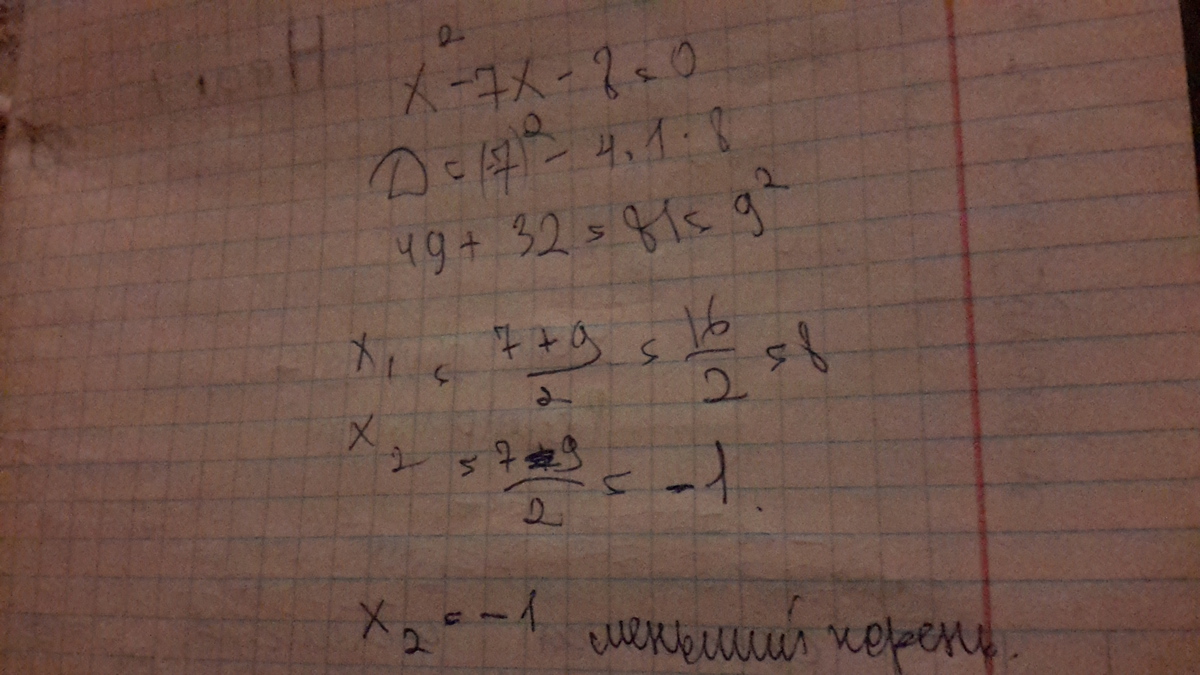 x² - 7x - 8 = 0
D = (-7)² - 4 · 1 · 8
49 + 32 = 81 = 9²
x₁ = (7 + 9)/2 = 16/2 = 8
x₂ = (7 - 9)/2 = -1.
x₂ = -1 меньший корень.